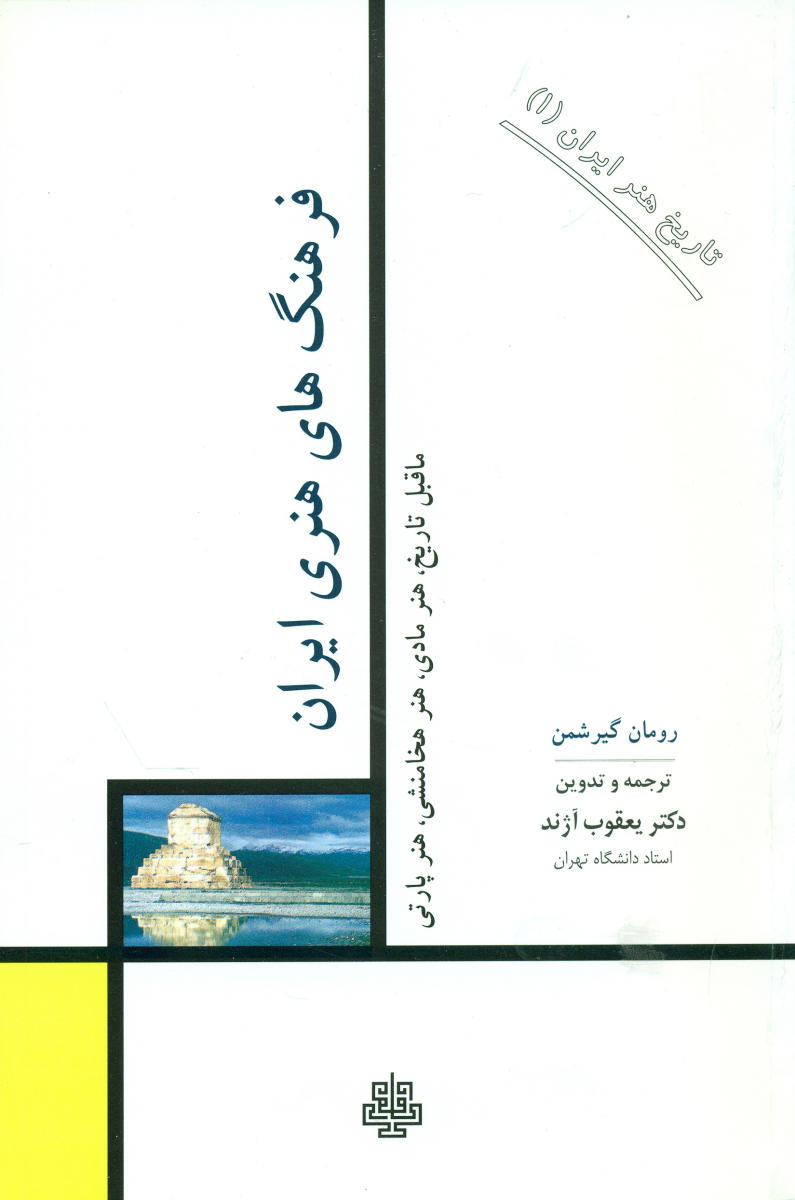 تاریخ هنر ایران (۱)
فرهنگ های هنری ایران
ماقبل تاریخ، هنر مادی، هنر هخامنشی، هنر پارتی
رومان گیرشمن
ترجمه و تدوین
دکتر یعقوب آژند
استاد دانشگاه تهران